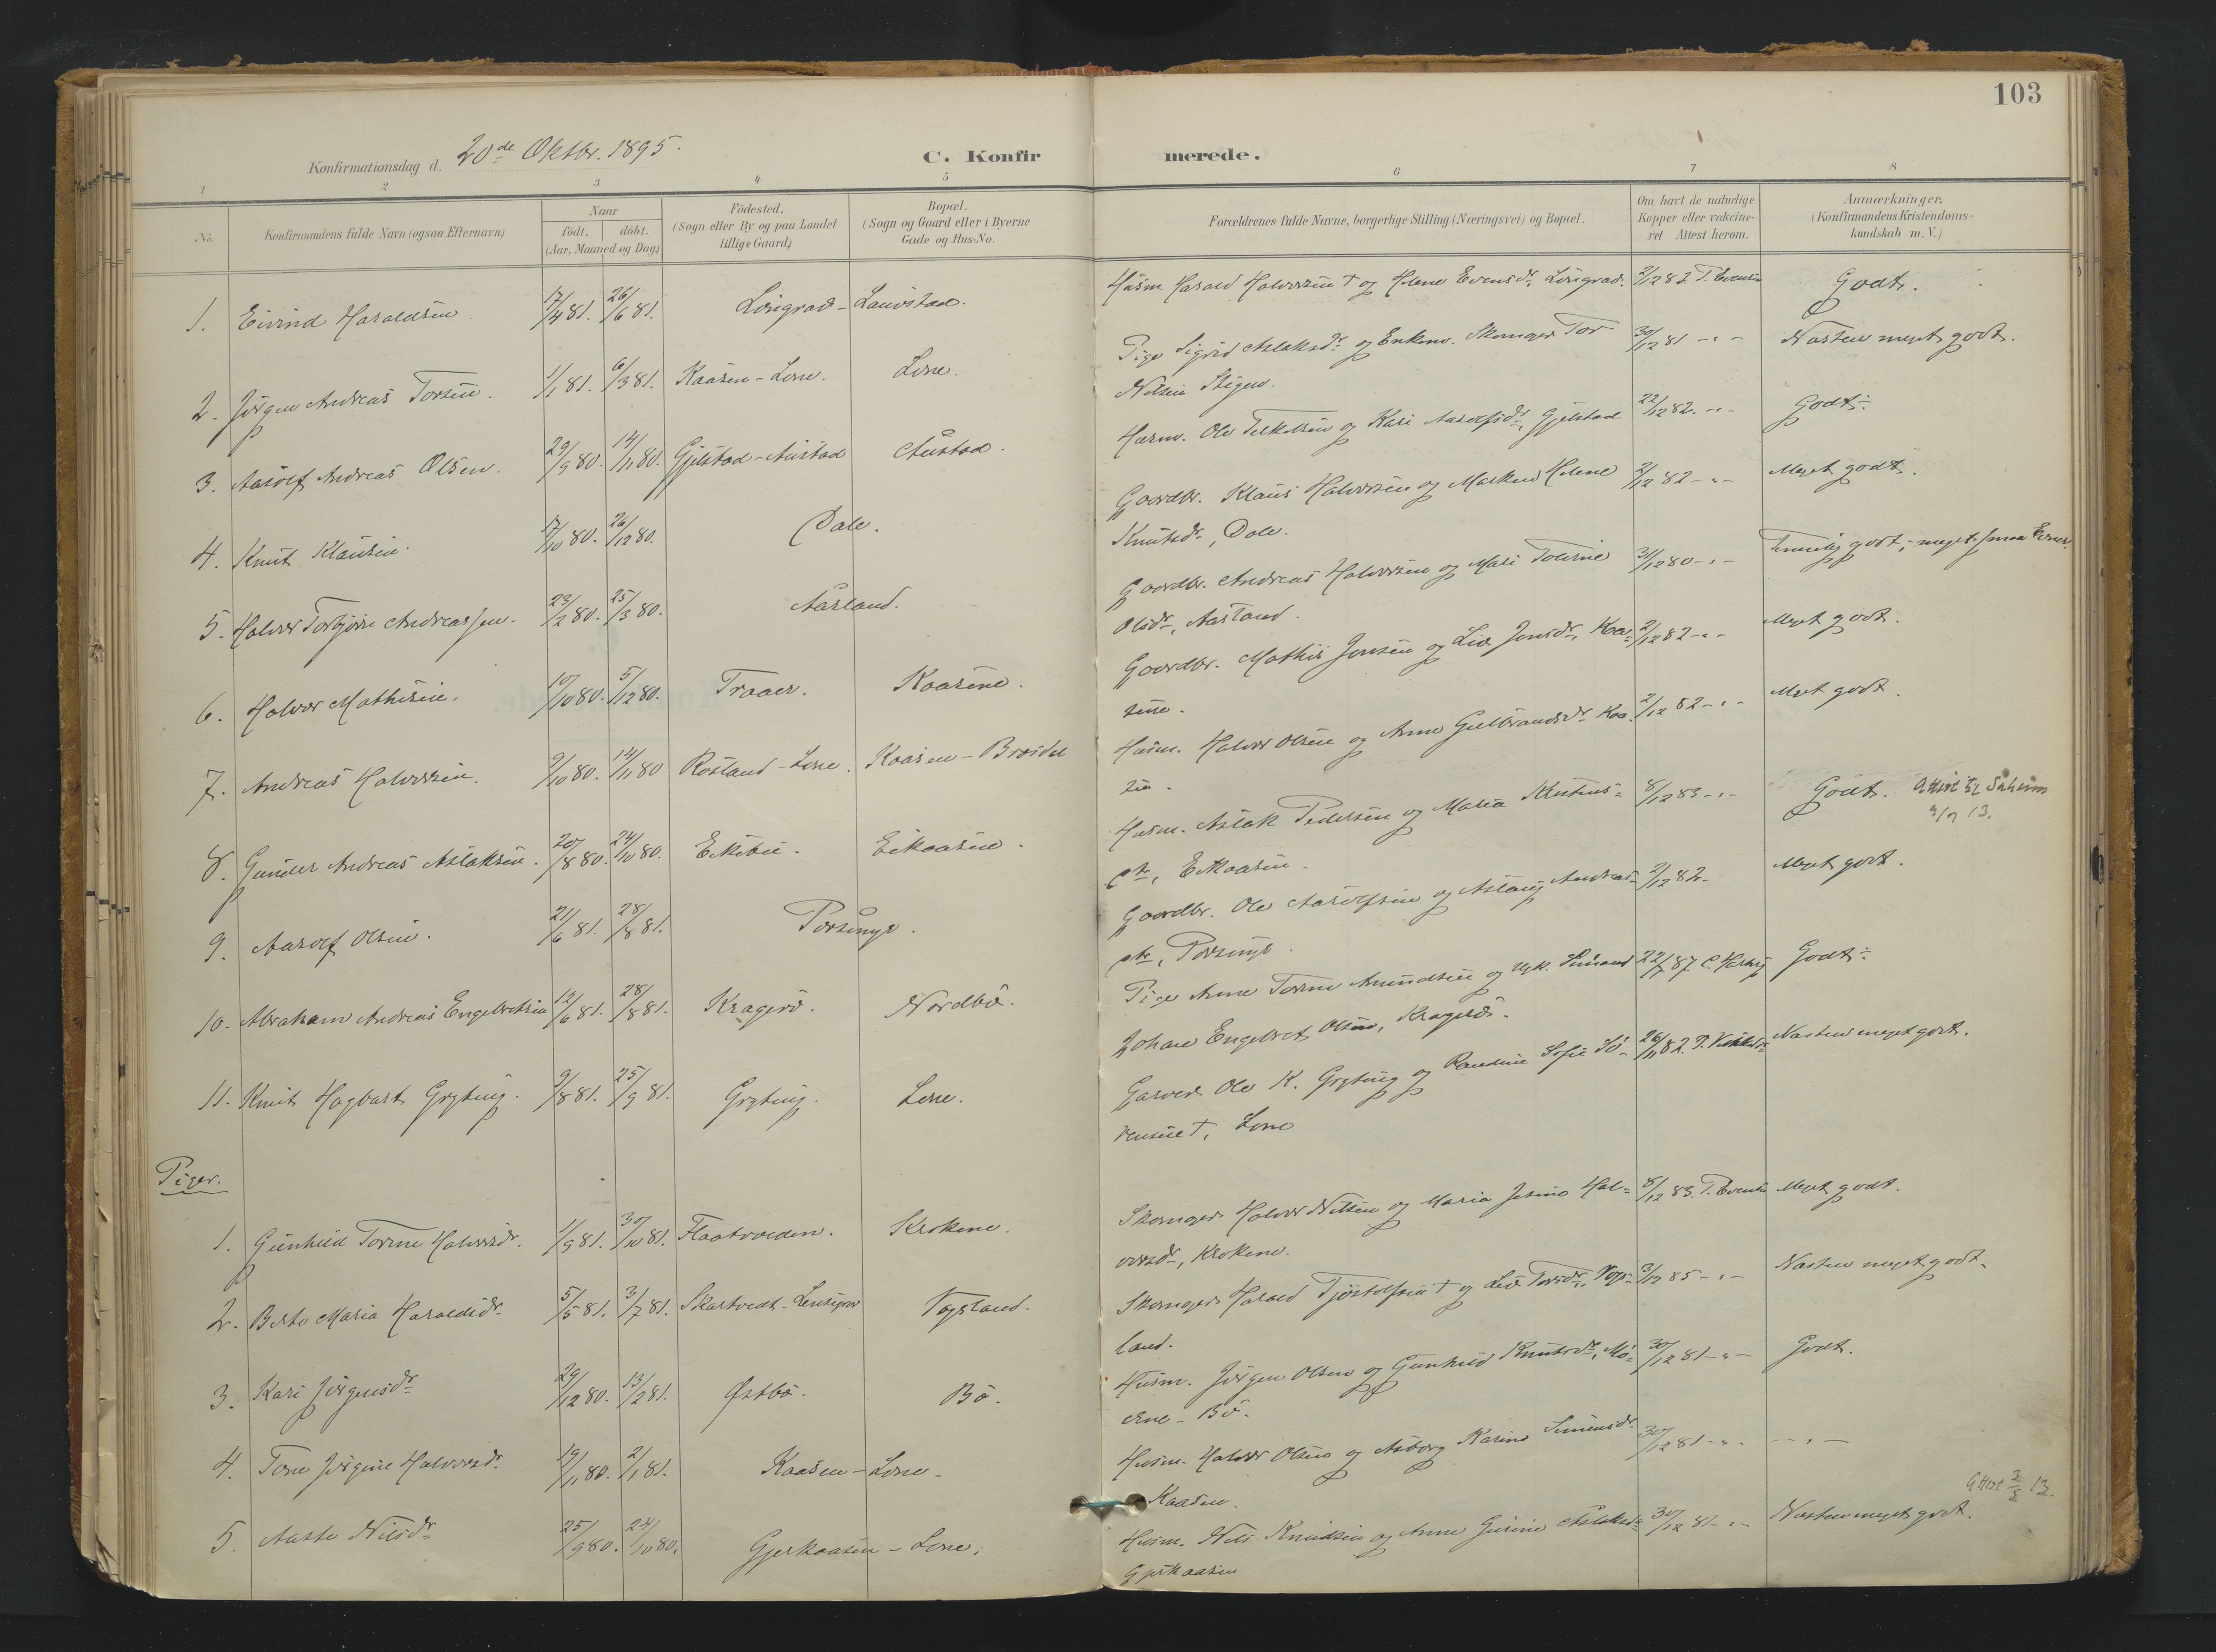 103
Konfirmationsdag d. 20de Oktbr. 1895.
C. Konfirmerede.
1 2 3 4 5 6 7 8
No.
Konfirmandens fulde Navn (ogsaa Efternavn)
Naar
födt. döbt.
(Aar, Maaned og Dag)
Födested.
(Sogn eller By og paa Landet
tillige Gaard)
Bopæl.
(Sogn og Gaard eller i Byerne
Gade og Hus-No.
Forældrenes fulde Navne, borgerlige Stilling (Næringsvei) og Bopæl.
Om havt de naturlige
Kopper eller vakcine-
ret Attest herom.
Anmærkninger.
(Konfirmandens Kristendoms-
kundskab m. V.)
1. Eivind Haraldsen 17/4 81. 26/6 81. Husm. Harald Halvorsen † og Helene Evensdr. 2/12 82. T. Evensen Godt.
2. Jörgen Andreas Torsen. 1/1 81. 6/3 81. Kaasen-Lone. Lone. Pige Sigrid Aslaksdr. og Enkem. Tor 30/12 81 -"- Næsten meget godt.
Nilsen
3. Aasolf Andreas Olsen. 29/9 80. 14/11 80. Gjelstad-Austad Austad. Husm. Ole og Kari Aasolfsdr., Gjelstad 22/12 82. -"- Godt.
4. Knut Klausen. 17/10 80. 26/12 80. Dale. Gaardbr. Klaus Halvorsen og Helene 2/12 82 -"- Meget godt.
Knutsdr., Dale.
5. Halvor Torbjörn Andreassen. 23/2 80. 25/3 80. Aasland. Gaardbr. Andreas Halvorsen og 31/12 80 -"- Temmelig godt; meget smaa Evner.
Olsdr., Aasland.
6. Halvor Mathisen. 10/10 80. 5/12 80. Traaer. Kaasene. Gaardbr. Mathis Jensen og Liv Jensdr. Kaa- 2/12 82 -"- Meget godt.
sene.
7. Andreas Halvorsen. 9/10 80. 14/11 80 Rosland-Lone. Kaasen- Husm. Halvor Olsen og Anne Gulbrandsdr. Kaa- 2/12 82 -"- Meget godt.
sen.
8. Gunder Andreas Aslaksen. 20/8 80. 24/10 80. Eikaasen. Husm. Aslak Pedersen og Maria 8/12 83 -"- Godt.
dtr., Eikaasen.
9. Aasolf Olsen. 21/6 81. 28/8 81. Porsmyr. Gaardbr. Ole Aasolfsen og Aslaug Andreas- 2/12 82. Meget godt.
dtr., Porsmyr.
10. Abraham Andreas Engebretsen 12/6 81. 28/8 81. Kragerö. Nordbö. Pige Anne Torine Amundsen og Ugk. Sömand 22/7 87. Godt.
Johan Engebret Olsen, Kragerö.
11. Knut Hagbart Grytting. 9/8 81. 25/9 81. Grytting. Lone. Garver Ole K. Grytting og Pauline Sofie Sö- 26/11 82. Næsten meget godt.
rensen †, Lone
Piger.
1. Gunhild Torine Halvorsdr. 1/9 81. 30/10 81. Krokene. Halvor Nilsen og Maria Hal- 8/12 83. T. Evensen Meget godt.
vorsdr., Krokene.
2. Berte Maria Haraldsdr. 5/5 81. 3/7 81. Vogsland. Harald Tjöstolfsen † og Liv Torsdr., Vogs- 3/12 85 -"- Næsten meget godt.
land.
3. Kari Jörgensdr. 29/12 80. 13/2 81. Østbö. Bö. Husm. Jörgen Olsen og Gunhild Knutsdr., Mo- 30/12 81 -"- Godt.
erne-Bö.
4. Tone Jörgine Halvorsdr. 19/11 80. 2/1 81. Kaasen-Lone. Husm. Halvor Olsen og Asborg Karine Simensdr. 30/12 81 -"- -"-
Kaasen.
5. Aaste Nilsdr. 25/9 80. 24/10 80. Gjerkaasen-Lone. Husm. Nils Knudsen og Anne Gurine Aslaksdr. 30/12 81 -"- Næsten meget godt.
Gjerkaasen